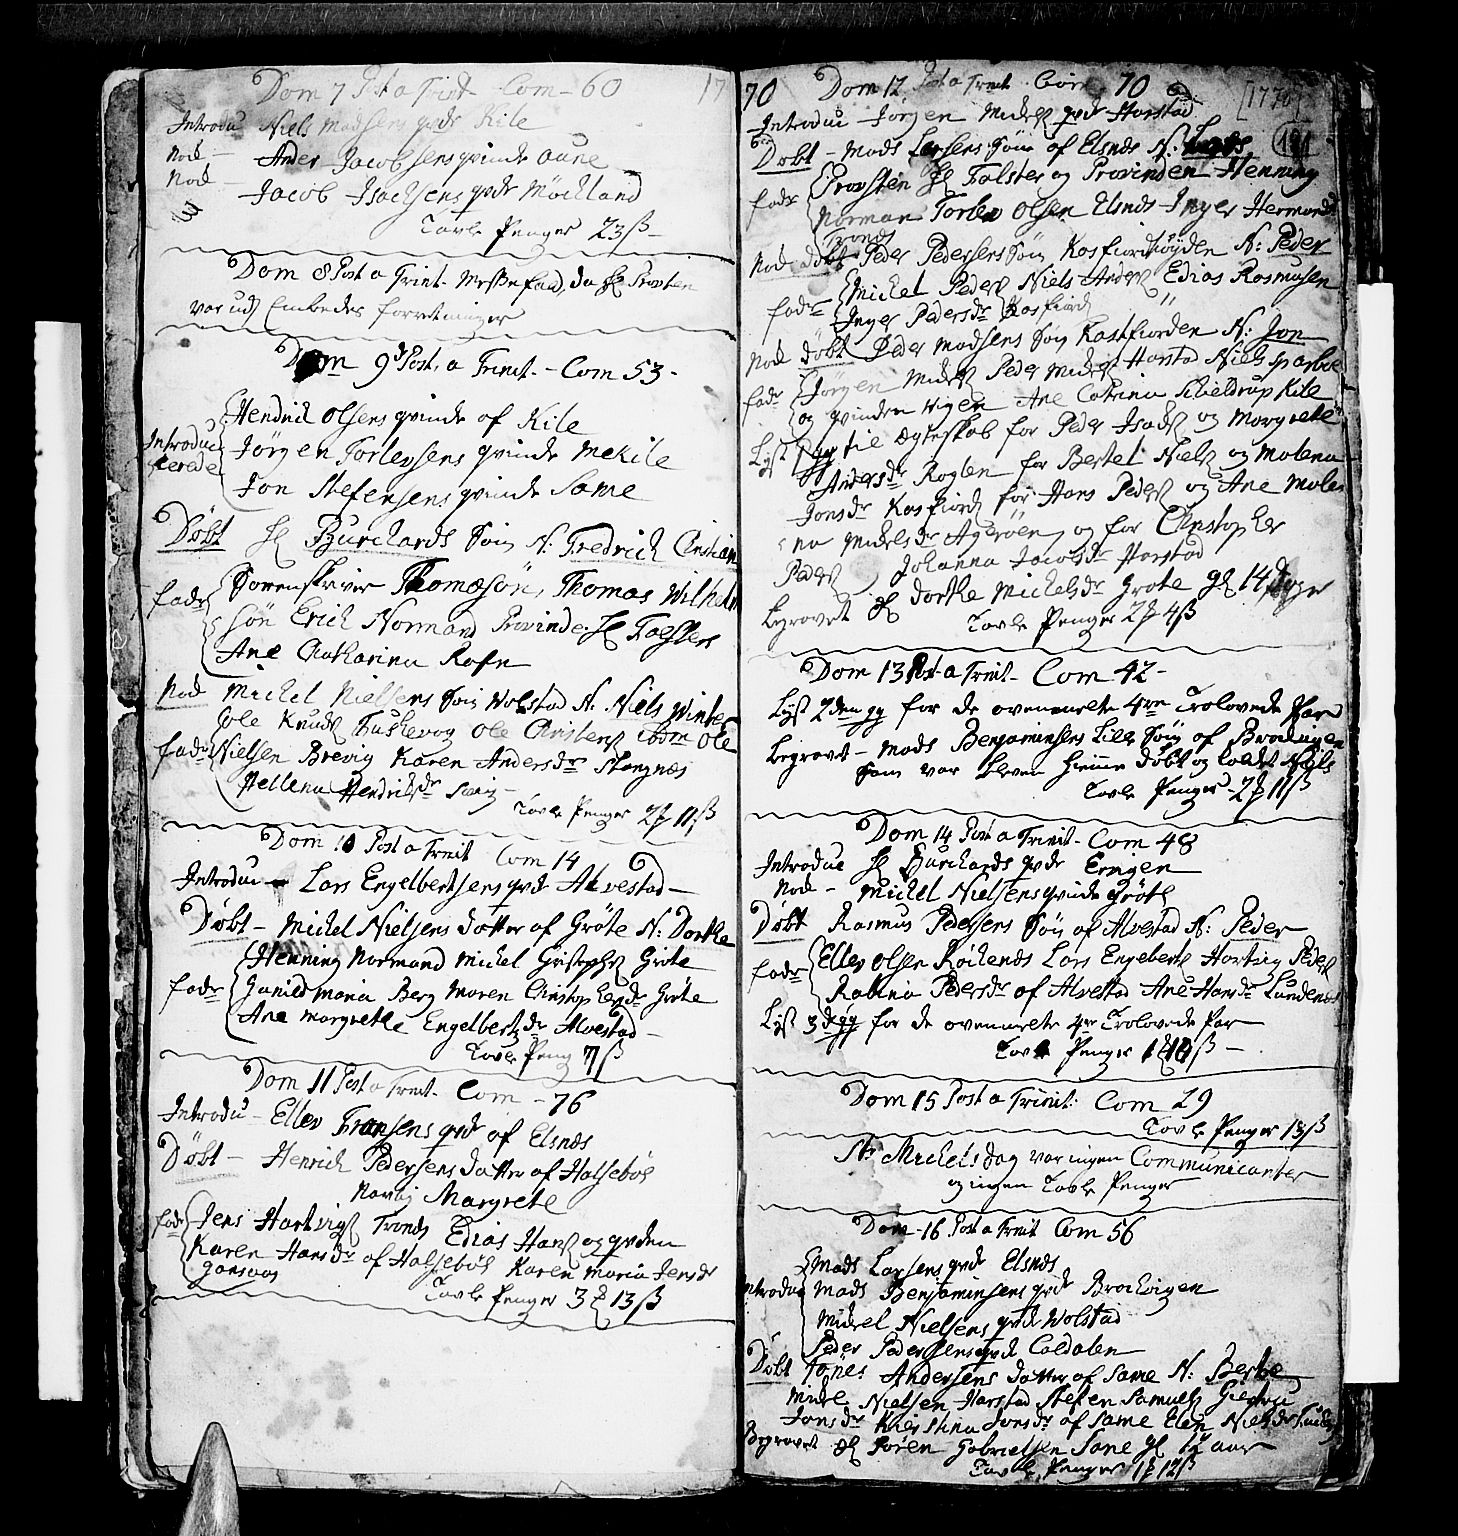 Dom 7 Post a Trint. Com - 60
Introdu Niels Madsens qvde Kile
Nok - Ander Jacobsens qvinde Aune
Nok - Jacob Isachsens qvde Möckland
Tavle Penger 23ß
Dom 8 Post a Trint. Messefald, da Hr Provsten
var ud j Embedes forretninger
Dom 9de Post. a Trinit. - Com 53 -
Hendrich Olsens qvinde af Kile
Introdu Jörgen Torlevsens qvinde Mekile
cerede Jon Stefensens qvinde Same
Döbt Hr Burchards Sön N: Fredrich Christian
fadr Sorenskriver Thomæsön, Thomas Wilhelm
sön Erich Normand Provinde Hr Falsters
Ane Chatharina Rafn
Nok Michel Nielsens Sön Wolstad N. Niels Winter
Ole Knuds Fuskevog Ole Christens ibdm Ole
fadr Nielsen Brevig Karen Andersdr Stangnæs
Hellena Hendrichsdr
Tavle Penger 2 11ß
Dom 10 Post a Trinit Com 14
Introdu - Lars Engelbertsens qvde Alvestad -
Döbt - Michel Nielsens Datter af Gröte N: Dorthe
Henning Normand Michel Gristophs Gröte
fadr Gunild Maria Berg Maren Christophersdr Gröte
Ane Margrethe Engelbertsdr Alvestad -
Tavle Peng 7ß
Dom 11 Post a Trinit. Com - 76
Introdu - Ellev Fransens qvde af Elsnes
Döbt - Henrich Pedersens Datter af Halseböe
Navn Margrete
fadr Jens Hartvigs Tronds Edias Hans og qvden
Karen Hansdr af Halseböe Karen Maria Jensdr
Gansaas
Tavle Penger 3 13ß
1770 Dom 12 Post a Trinit. Com 70
[1770]
191
Introdu Jörgen Michels qvde Harstad
Döbt - Mads Larsens Sön af Elsnes N: Lars
fadr Provsten Hr Falster og Provinden Henning
Norman Torlev Olsen Elsnes Inger Hermands
Tronds
Nok Döbt Peder Pedersens Sön Kasfiordhöyden N: Peder
fadr Michel Peders Niels Anders Edias Rasmusen
Inger Pedersdr Kasfiord
Nok döbt Peder Madsens Sön Kasfiorden N: Jon
fadr Jörgen Michels Peder Michels Harstad Niels
og qvinden Vigen Ane Catrina Schieldrup Kile
Lyst gg til Ægteskab for Peder Isachs og Margrethe
Andersdr Roglen for Bertel Niels og Malena
Jonsdr Kasfiord for Hans Peders og Ane Male
na Michelsdr Ageröen, og for Christopher
Peders, Johanna Jacobsdr Harstad
Begravet Dorthe Michelsdr Gröte gl 14 Dage
Tavle Penger 2 4ß
Dom 13 Post a Trinit. Com 42 -
Lyst 2den gg for de ovenmelte 4re Trolovede Par
Begravet - Mads Benjaminsens Lille Sön af
som var bleven hiemme döbt og kaldet Niels
Tavle Penger - 2 11ß
Dom 14 Post a Trinit. - Com 48
Introdue Hr Burchards qvde Erigen
Nok - Michel Nielsens qvinde Gröte
Döbt Rasmus Pedersens Sön af Alvestad N: Peder
fadr Ellev Olsen Röckenes Lars Engeberts Hartvig Peders
Rabina Pedersdr af Alvestad Ane Hansdr Lundenes
Lyst 3de gg for de ovenmelte 4re Trolovede Par
Tavle Penger 1 10ß -
Dom 15 Post a Trinit: Com 29
Tavle Penger 13ß
St Michels dag var ingen Communicanter
og ingen Tavle Penger
Dom - 16 Post a Trinit Com 56
Mads Larsens qvde Elsnes
Introdue Mads Benjaminsens qvde Brochvigen
Michel Nielsens qvde Wolstad
Peder Pedersens qvde Caldalen
Döbt Anders Andersens Datter af Same N: Berthe
Michel Nielsen Harstad Stefen Samuels
Jonsdr Kierstina Jonsdr af Same Elen Nielsdr
Begravet Sören Gabrielsen Sane gl 12 aar
Tavle Penger 1 12ß